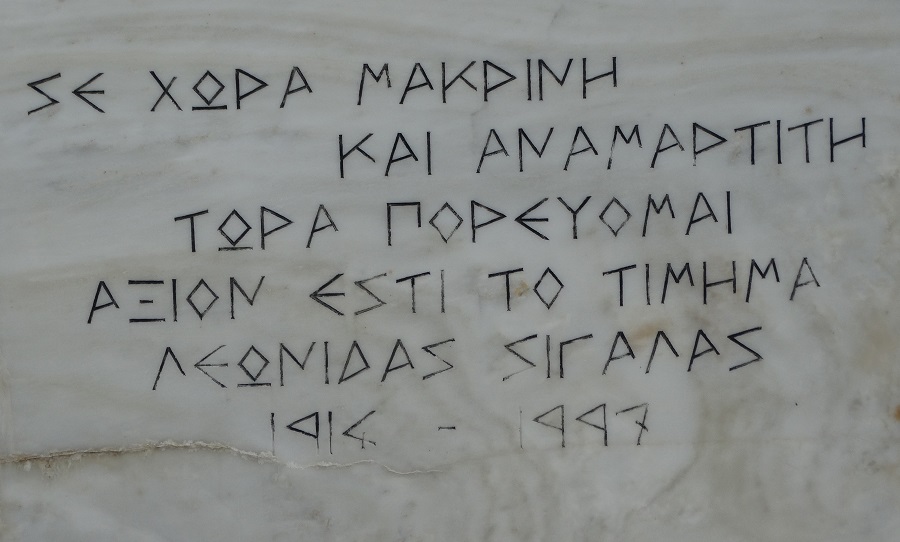 ΣΕ ΧΩΡΑ ΜΑΚΡΙΝΗ
ΚΑΙ ΑΝΑΜΑΡΤΙΤΗ
ΤΩΡΑ ΠΟΡΕΥΟΜΑΙ
ΑΞΙΟΝ ΕΣΤΙ ΤΟ ΤΙΜΗΜΑ
ΛΕΩΝΙΔΑΣ ΣΙΓΑΛΑΣ
1916 - 1997